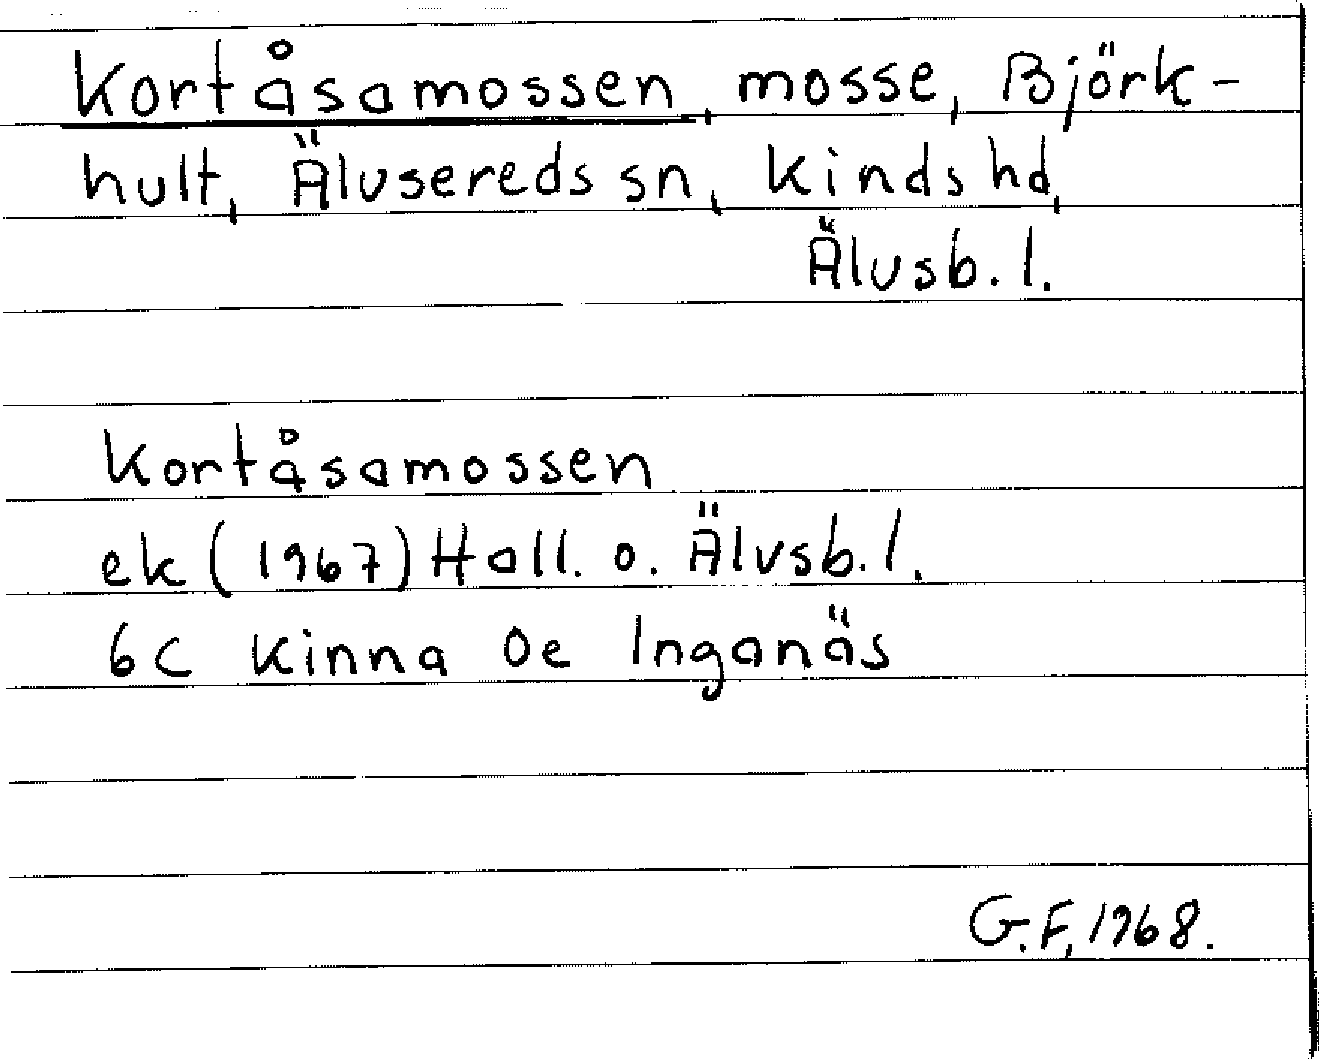 Kortåsamossen, mosse, Björk-
hult, Älvsereds sn, Kinds hd,
Älvsb. l.
Kortåsamossen
ek (1967) Hall. o. Älvsb. l.
6C Kinna 0e Inganäs
G.F, 1968.